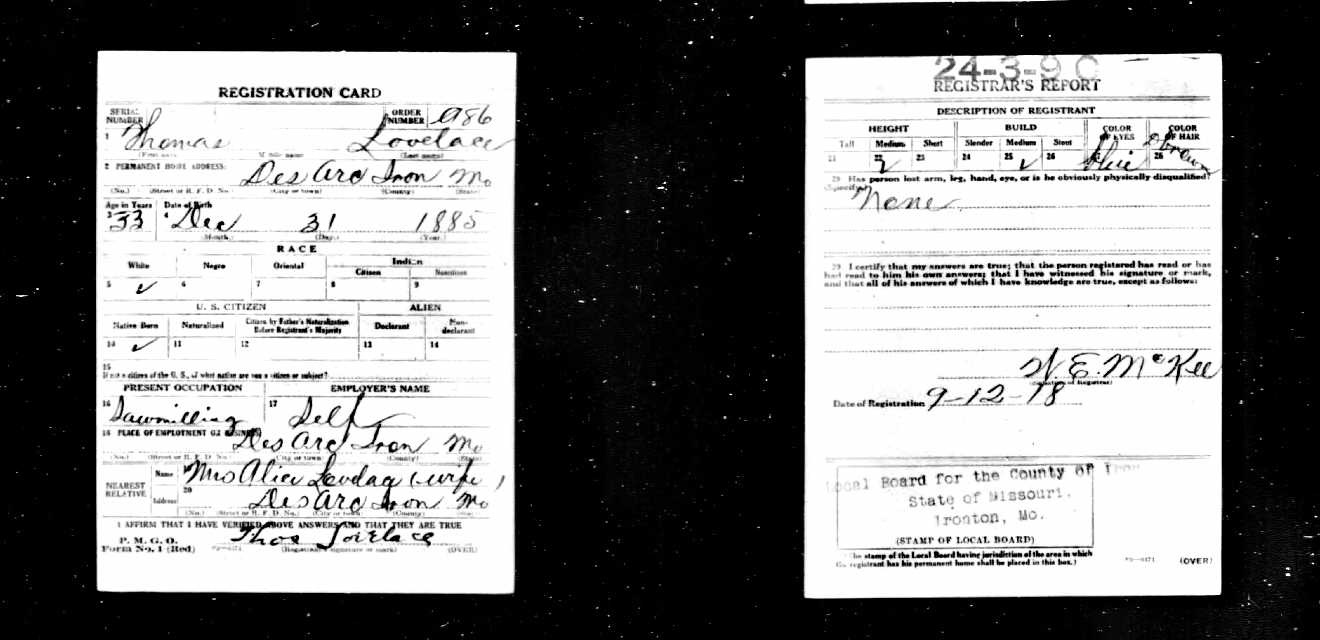 REGISTRATION CARD
SERIAL NUMBER ORDER NUMBER A986
1 Thomas Lovelace
(First name) Middle name (Last name)
2 PERMANENT HOME ADDRESS:
Des Arc Iron Mo
(No.) (Street or R. F. D. No.) (City or town) (County) (State)
Age in Years Date of Birth
3 33 4 Dec 31 1885
(Month.) (Day.) (Year.)
RACE
White Negro Oriental Indian
Citizen Noncitizen
5 ✓ 6 7 8 9
U. S. CITIZEN ALIEN
Native Born Naturalized Citizen by Father's Naturalization Before Registrant's Majority Declarant Non-declarant
10 ✓ 11 12 13 14
15
If not a citizen of the U. S., of what nation are you a citizen or subject?
PRESENT OCCUPATION EMPLOYER'S NAME
16 Sawmilling 17 Self
18 PLACE OF EMPLOYMENT OR BUSINESS:
Des Arc Iron Mo
(No.) (Street or R. F. D. No.) (City or town) (County) (State)
NEAREST RELATIVE Name 19 Mrs Alice (wife)
Address 20 Des Arc Iron Mo
(No.) (Street or R. F. D. No.) (City or town) (County) (State)
I AFFIRM THAT I HAVE VERIFIED ABOVE ANSWERS AND THAT THEY ARE TRUE
P. M. G. O.
Form No. 1 (Red) Thos Lovelace
(Registrant's signature or mark) (OVER)
24-3-9 C
REGISTRAR'S REPORT
DESCRIPTION OF REGISTRANT
HEIGHT BUILD COLOR OF EYES COLOR OF HAIR
Tall Medium Short Slender Medium Stout
21 22 ✓ 23 24 25 ✓ 26 27 blue 28 brown
29 Has person lost arm, leg, hand, eye, or is he obviously physically disqualified?
(Specify.)
None
30 I certify that my answers are true; that the person registered has read or has
had read to him his own answers; that I have witnessed his signature or mark,
and that all of his answers of which I have knowledge are true, except as follows:
W. E. McKee
(Signature of Registrar)
Date of Registration 9-12-18
Local Board for the County of Iron
State of Missouri,
Ironton, Mo.
(STAMP OF LOCAL BOARD)
(The stamp of the Local Board having jurisdiction of the area in which
the registrant has his permanent home shall be placed in this box.)
(OVER)